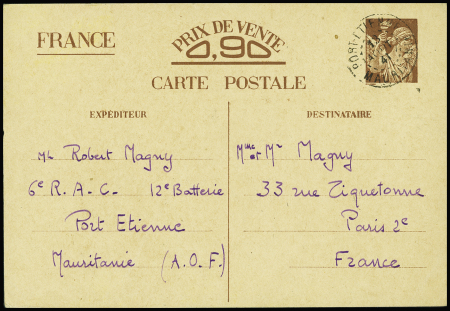 FRANCE
PRIX DE VENTE
0,90
CARTE POSTALE
EXPÉDITEUR
Robert Magny
6e R.A.C. 12e Batterie
Port Etienne
Mauritanie (A.O.F.)
DESTINATAIRE
Mme et Mr Magny
33 rue Tiquetonne
Paris 2e
France